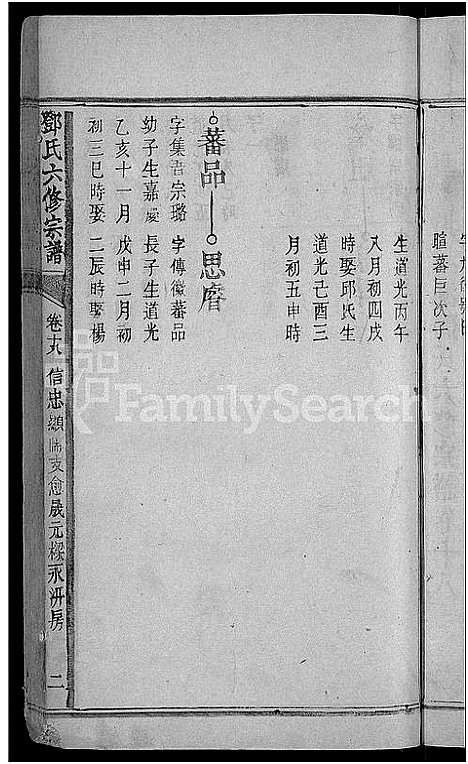 暄蕃巨次子
生道光丙午
八月初四戌
時娶邱氏生
道光己酉三
月初五申時
蕃品
思
字集吾宗璐
字傳
蕃品
幼子生嘉慶
長子生道光
乙亥十一月
戊申二月初
初三巳時娶
二辰時娶楊
鄧氏六修宗譜
卷十八
信忠
支愈晟元樑永
房
二
FamilySearch